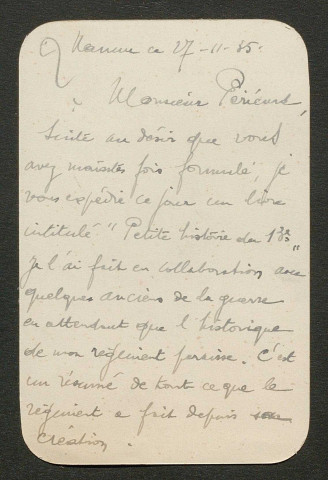 Namur ce 27-11-35.
Monsieur Périeurd,
Suite au désir que vous
avez maintes fois formulé, je
vous expédie ce jour un livre
intitulé "Petite histoire du 13e"
Je l'ai fait en collaboration avec
quelques anciens de la guerre
en attendant que l'historique
de mon régiment paraisse. C'est
un résumé de tout ce que le
régiment a fait depuis sa
création.